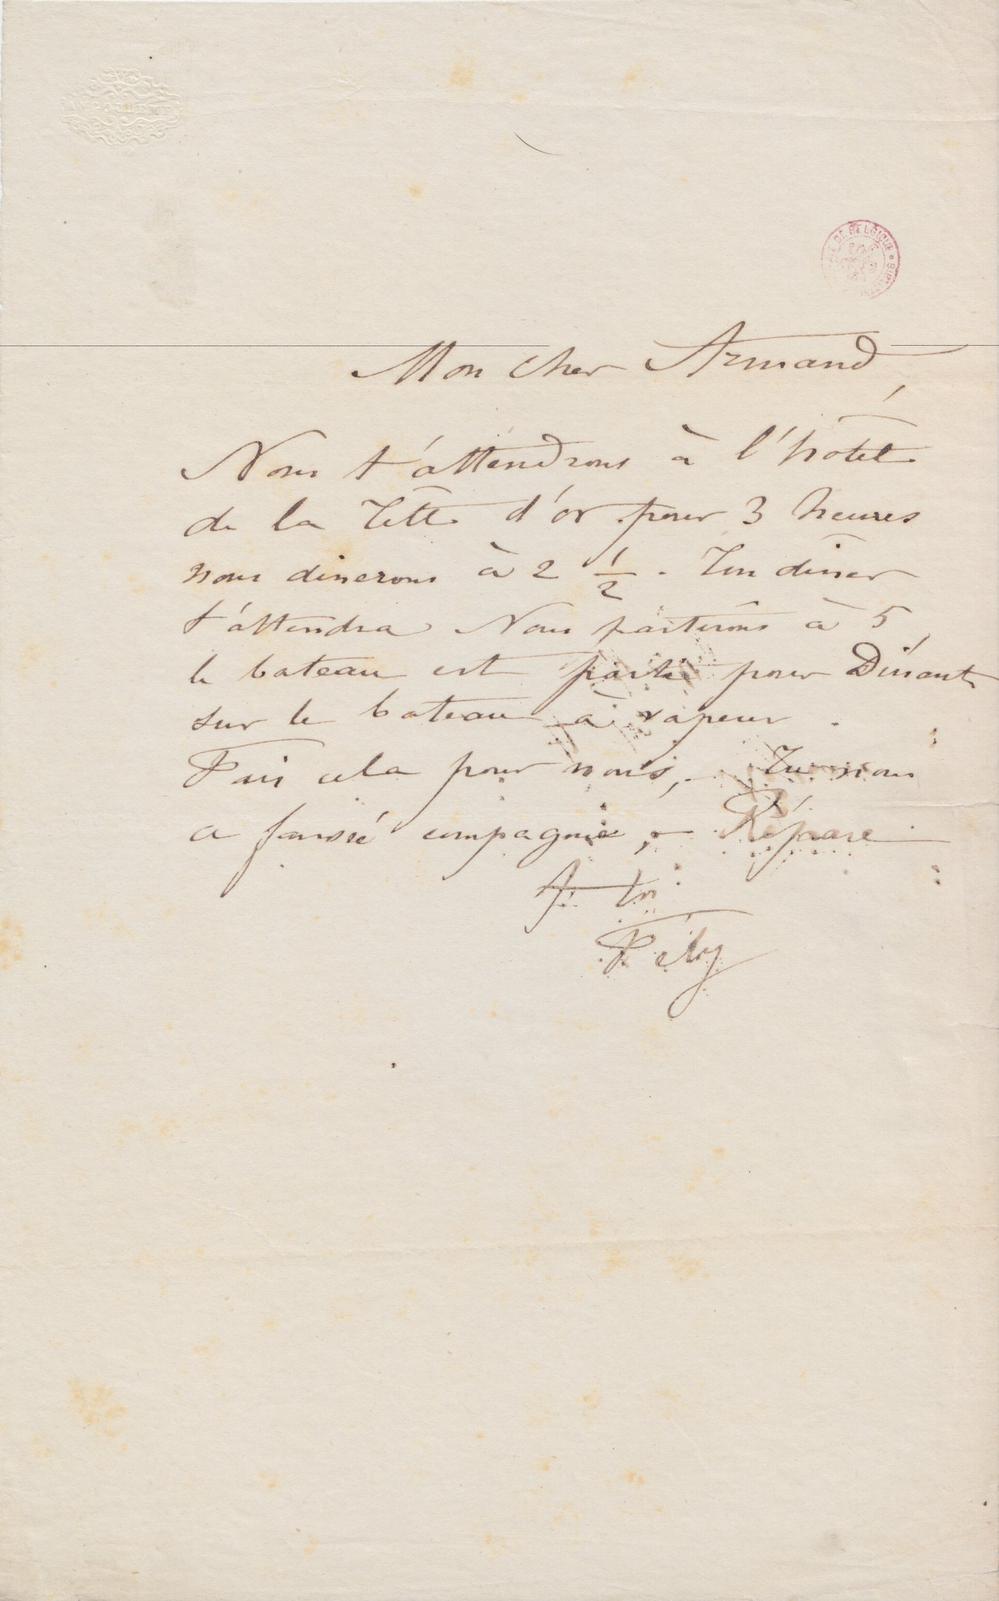 Mon cher Armand,
Nous t'attendrons à l'hôtel
de la Tête d'or pour 3 heures
nous dinerons à 2 1/2. Ton diner
t'attendra Nous partirons à 5,
le bateau est parti pour Dinant
sur le bateau à vapeur.
Fais cela pour nous, Tu nous
a faussé compagnie, – Répare
A toi
Fély
DE BELGIQUE